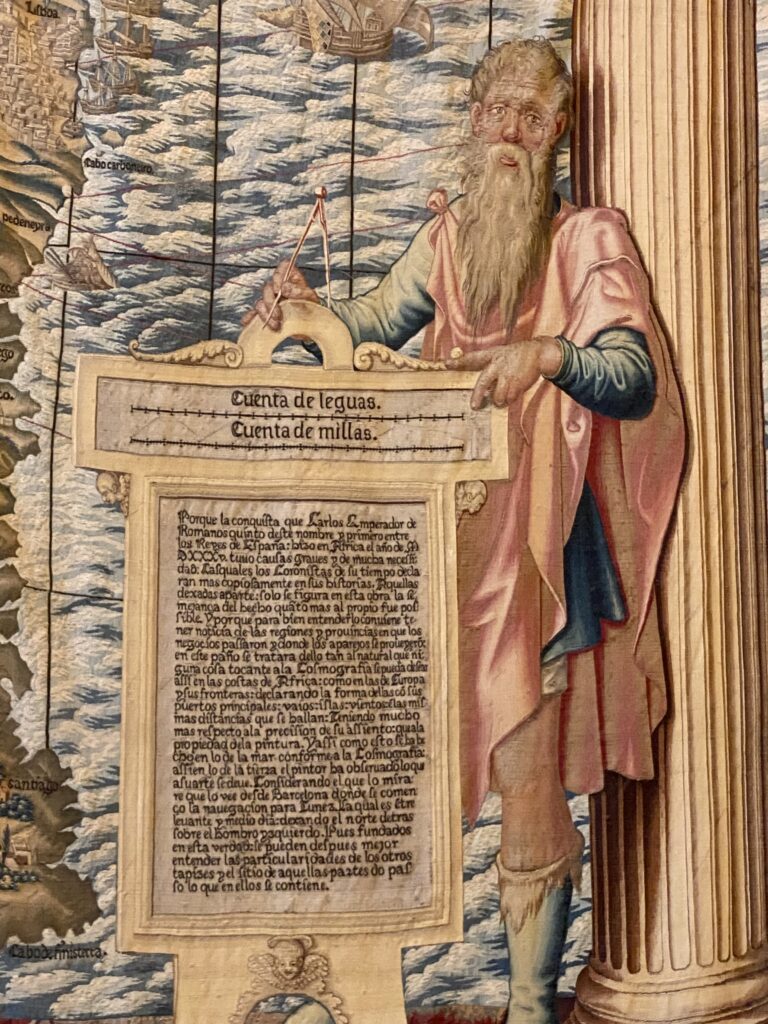 Lisboa.
Cabo carboneiro
pedeneyra
Cuenta de leguas.
Cuenta de millas.
Porque la conquista que Carlos Emperador de
Romanos quinto deste nombre y primero entre
los Reyes de España: hizo en Africa el año de M
DXXXV. tuuo causas graues y de mucha necessi
dad: Lasquales los Coronistas de su tiempo decla
ran mas copiosamente en sus historias. Aquellas
dexadas aparte: solo se figura en esta obra la se
mejança del hecho quanto mas al propio fue pos
sible. Y porque para bien entenderlo conuiene te
ner noticia de las regiones y prouincias en que los
negocios passaron y donde los aparejos se proueyerõ:
en este paño se tratara dello tan al natural que nin
guna cosa tocante a la Cosmografia se pueda dessear
assi en las costas de Africa: como en las de Europa
y sus fronteras: declarando la forma dellas cõ sus
puertos principales: islas: vientos: las mis
mas distancias que se hallan: Teniendo mucho
mas respecto ala precision de su assiento: que ala
propiedad dela pintura. Y assi como esto se ha he
cho en lo de la mar conforme a la Cosmografia:
assi en lo de la tierra el pintor ha obseruado lo que
a su arte se deue. Considerando el que lo mira
re que lo vee desde Barcelona donde se comen
ço la nauegacion para Tunez. La qual es ẽtre
leuante y medio dia: dexando el norte detras
sobre el hombro yzquierdo. Pues fundados
en esta verdad: se pueden despues mejor
entender las particularidades de los otros
tapizes y el sitio de aquellas partes do pas
so lo que en ellos se contiene.
santiago
Cabo d. finisterra.